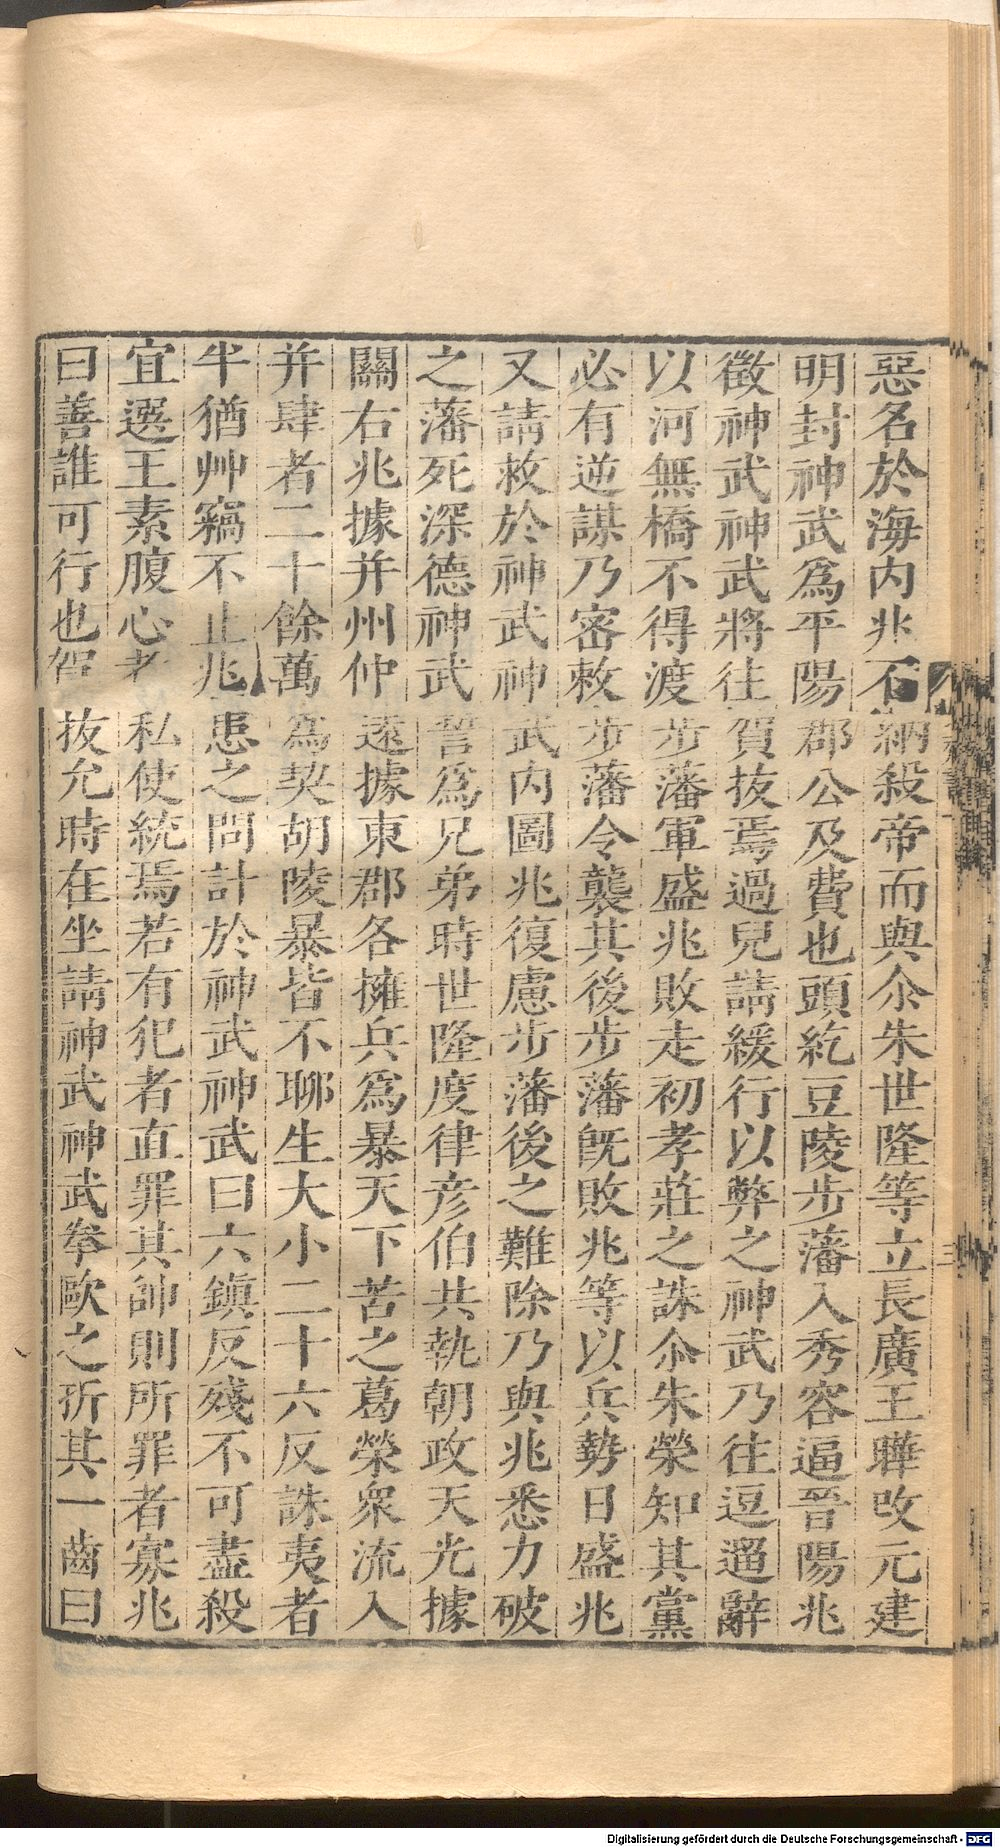 惡名於海内兆不納殺帝而與尒朱世隆等立長廣王曄改元建
明封神武爲平陽郡公及費也頭紇豆陵步藩入秀容逼晉陽兆
徵神武神武將往賀拔焉過兒請緩行以弊之神武乃往逗遛辭
以河無橋不得渡步藩軍盛兆敗走初孝莊之誅尒朱榮知其黨
必有逆謀乃密敕步藩令襲其後步藩旣敗兆等以兵勢日盛兆
又請救於神武神武内圖兆復慮步藩後之難除乃與兆悉力破
之藩死深德神武誓爲兄弟時世隆度律彦伯共執朝政天光據
關右兆據并州仲遠據東郡各擁兵爲暴天下苦之葛榮衆流入
并肆者二十餘萬爲契胡陵暴皆不聊生大小二十六反誅夷者
半猶艸竊不止兆患之問計於神武神武曰六鎮反殘不可盡殺
宜選王素腹心者私使統焉若有犯者直罪其帥則所罪者寡兆
曰善誰可行也賀拔允時在坐請神武神武拳歐之折其一齒曰
三
Digitalisierung gefördert durch die Deutsche Forschungsgemeinschaft - DFG